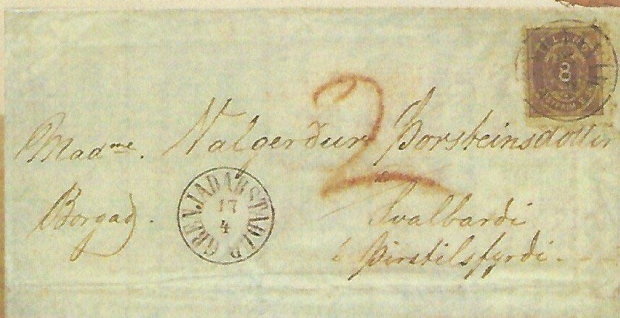 8
2
Madme. Valgerdur Þorsteinsdottir
Borgad.
GRENJADARSTADUR
17
4
Svalbardi
í Þirstilsfyrdi